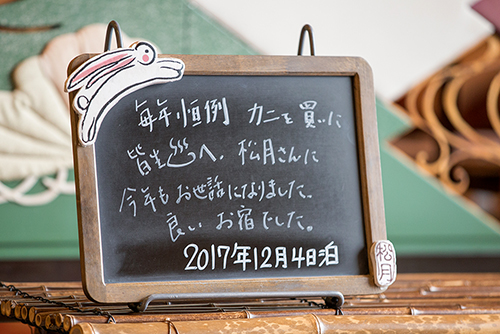 毎年恒例 カニを買いに
皆生♨へ、松月さんに
今年もお世話になりました。
良いお宿でした。
2017年12月4日泊
松月